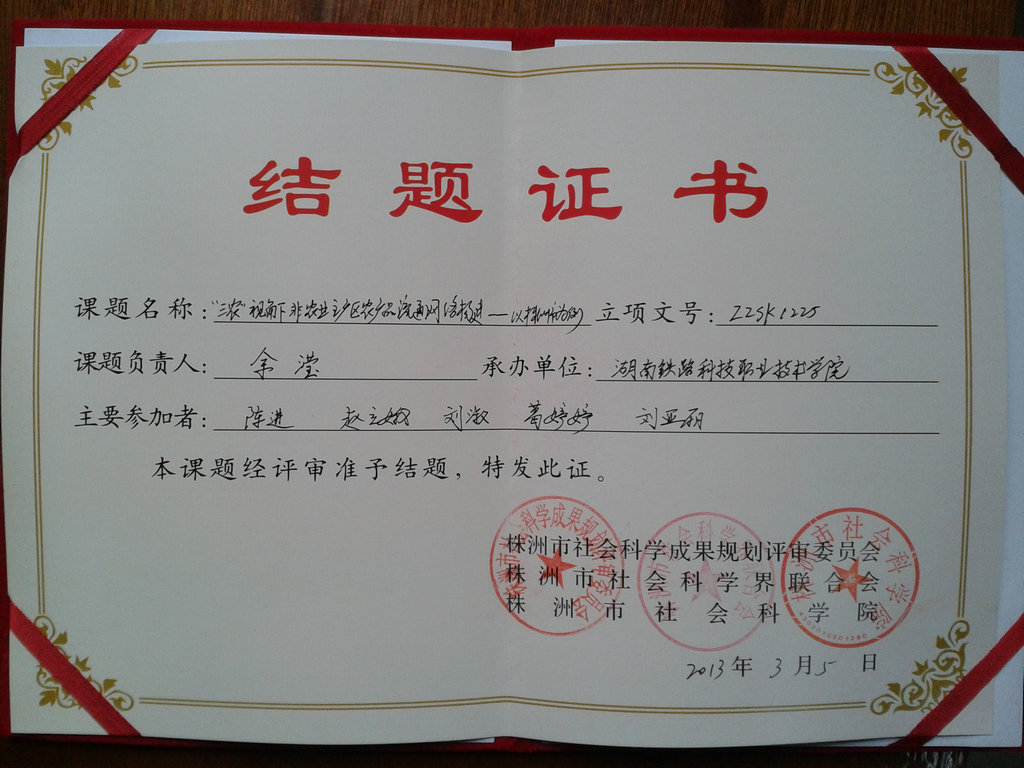 结题证书
课题名称：“三农”视角下非农业主产区农产品流通网络构建——以株洲市为例 立项文号：ZZSK1225
课题负责人：余滢 承办单位：湖南铁路科技职业技术学院
主要参加者：陈进 赵立娥 刘淑 葛婷婷 刘亚丽
本课题经评审准予结题，特发此证。
株洲市社会科学成果规划评审委员会
株洲市社会科学界联合会
株洲市社会科学院
2013年3月5日